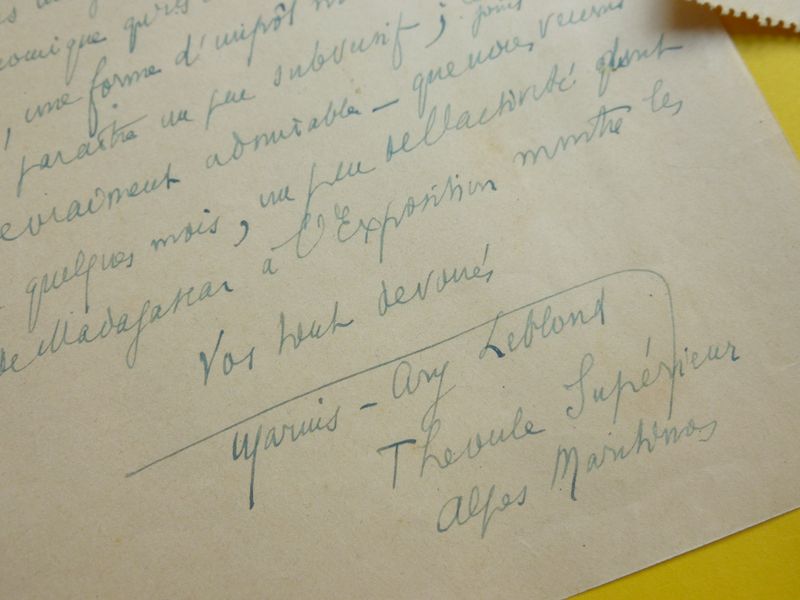 omique qu'
, une forme d'impôt
paraître un peu subversif ;
vraiment admirable — que nous venons
quelques mois, un peu de l'activité dont
de Madagascar à l'Exposition montre les
Vos tout dévoués
Marius-Ary Leblond
Theoule Supérieur
Alpes Maritimes